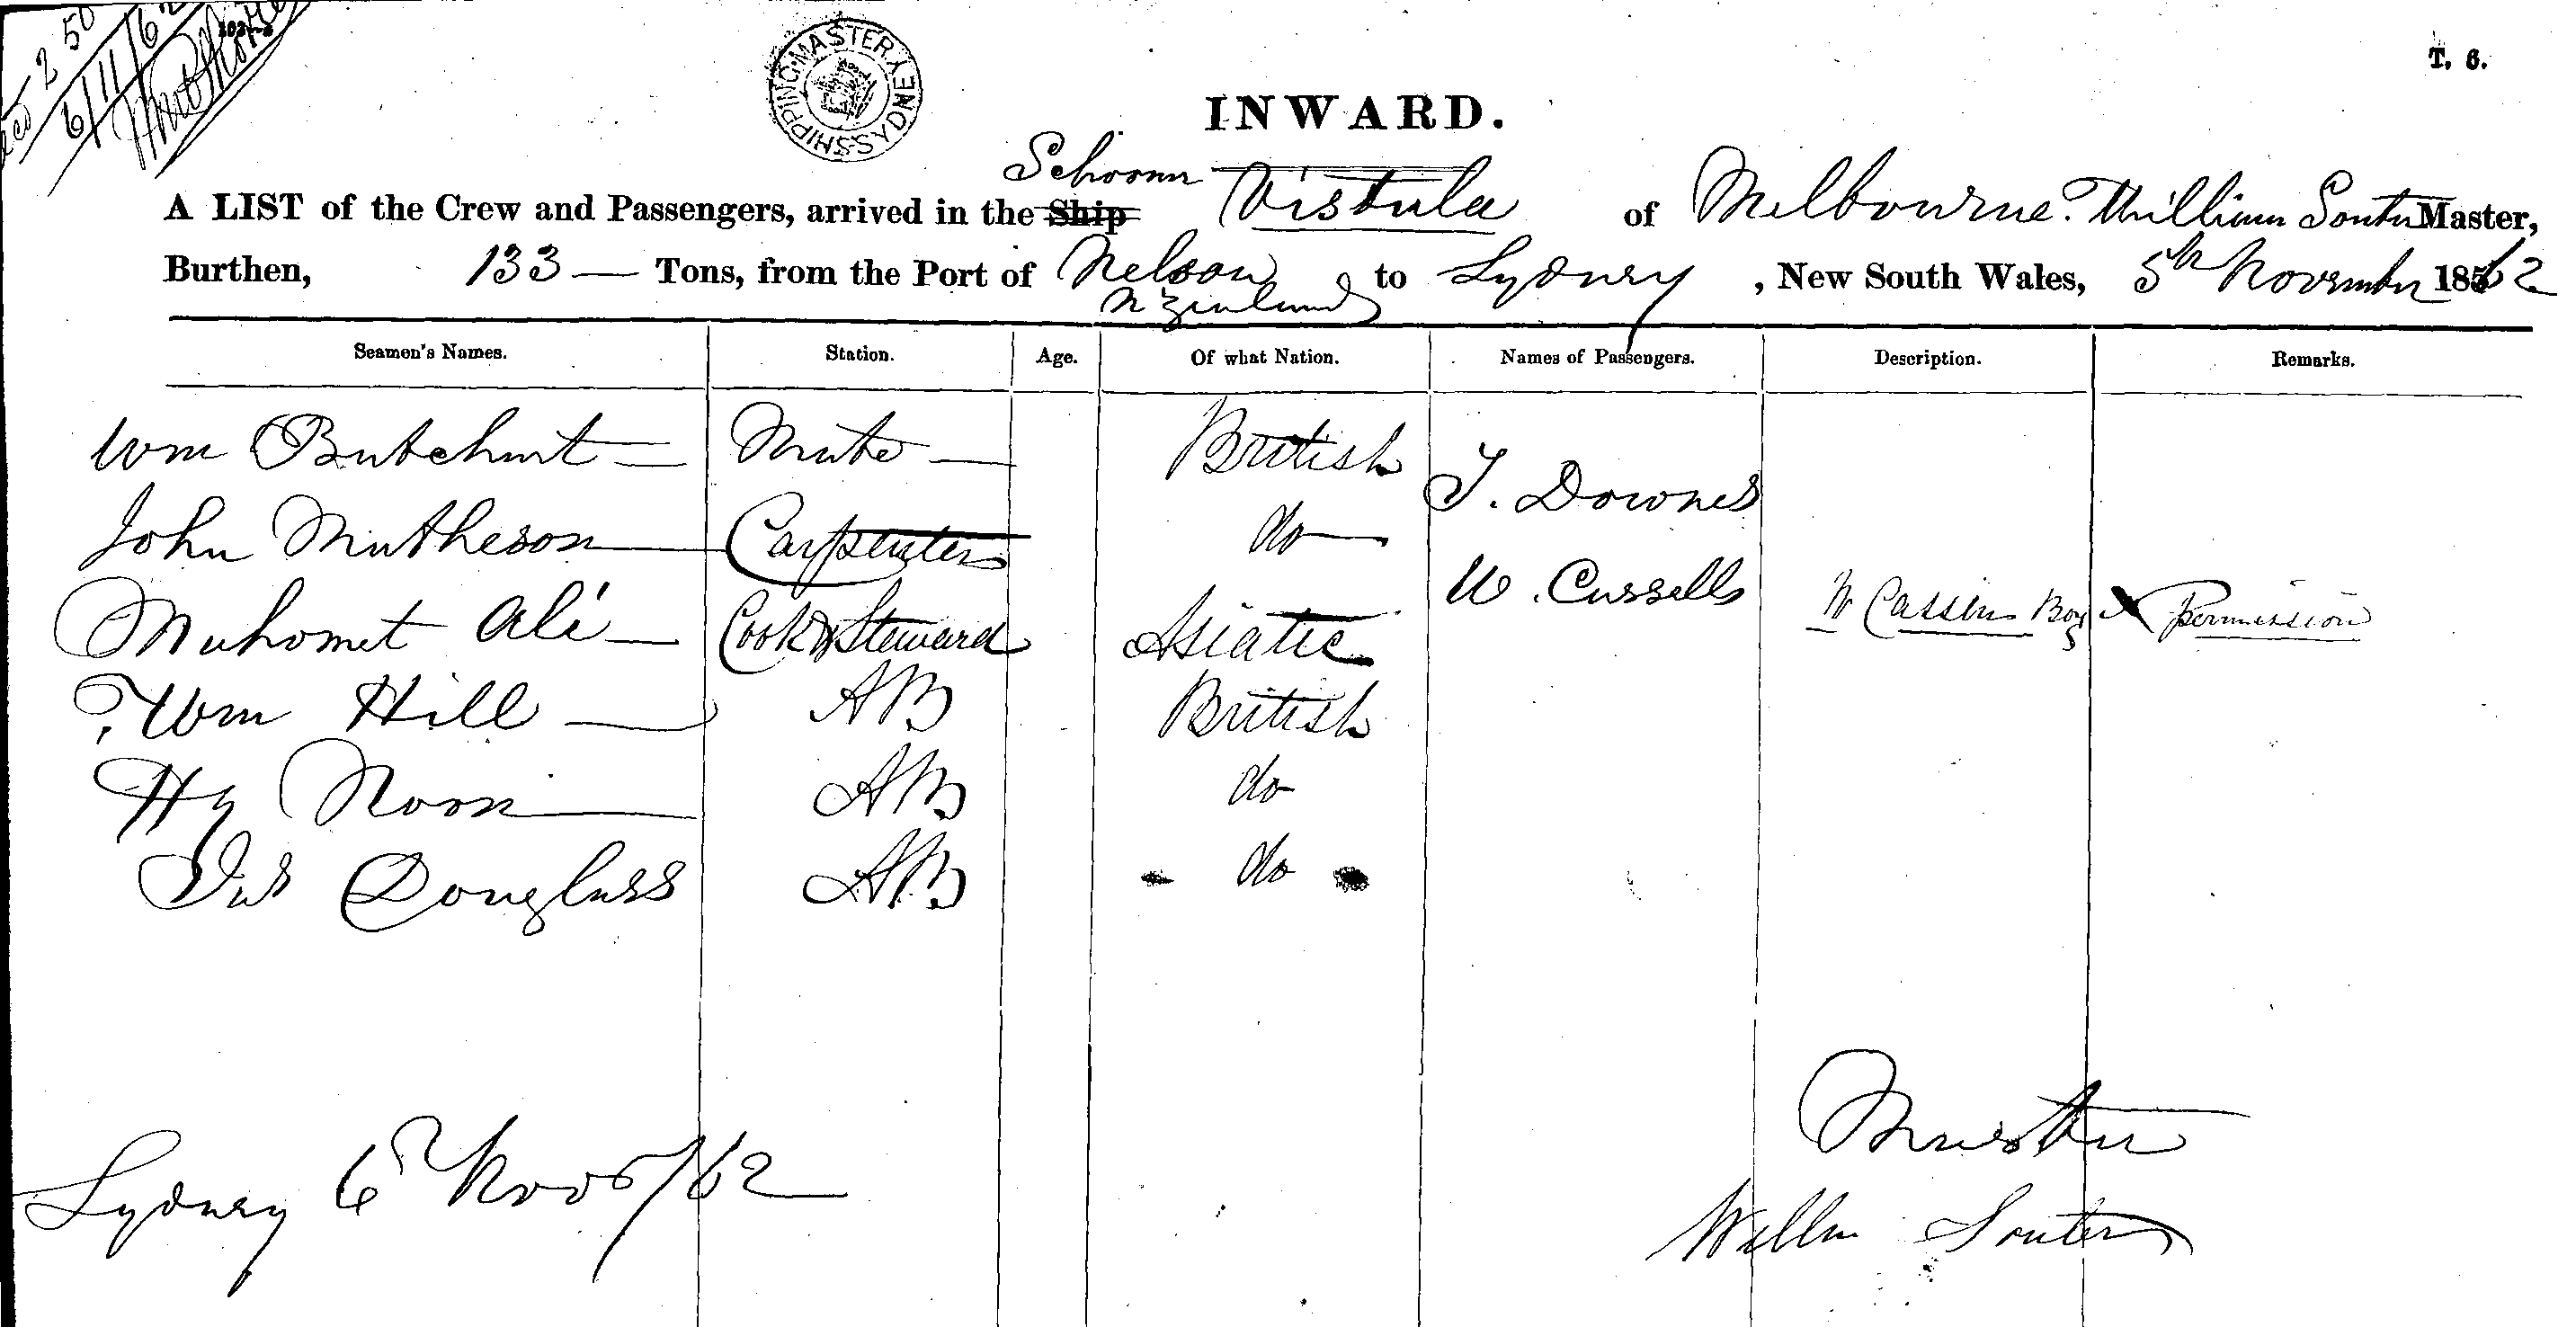 2 50
6/11/62
SHIPPING MASTER SYDNEY
T. 6.
INWARD.
Schooner
A LIST of the Crew and Passengers, arrived in the Ship Vistula of Melbourne. William Souter Master,
Burthen, 133 — Tons, from the Port of Nelson to Sydney, New South Wales, 5th November 1862
N Zealand
Seamen's Names. Station. Age. Of what Nation. Names of Passengers. Description. Remarks.
Wm Butchart — Mate — British
T. Downes
John Matheson — Carpenter do —
W. Cassells W Cassens Boy X Permission
Mahomet Ali — Cook & Steward Asiatic
Wm Hill — AB British
Hy Noon — AB do
Jas Douglass AB - do -
Master
Sydney 6th Novr/62
Willm Souter